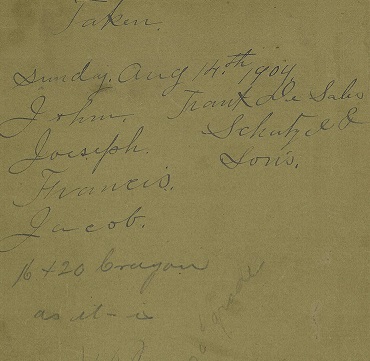 Taken.
Sunday. Aug 14th 1904
John. Frank De Sales
Joseph. Schutzel &
Francis. Sons.
Jacob.
16 x 20 Crayon
as it is